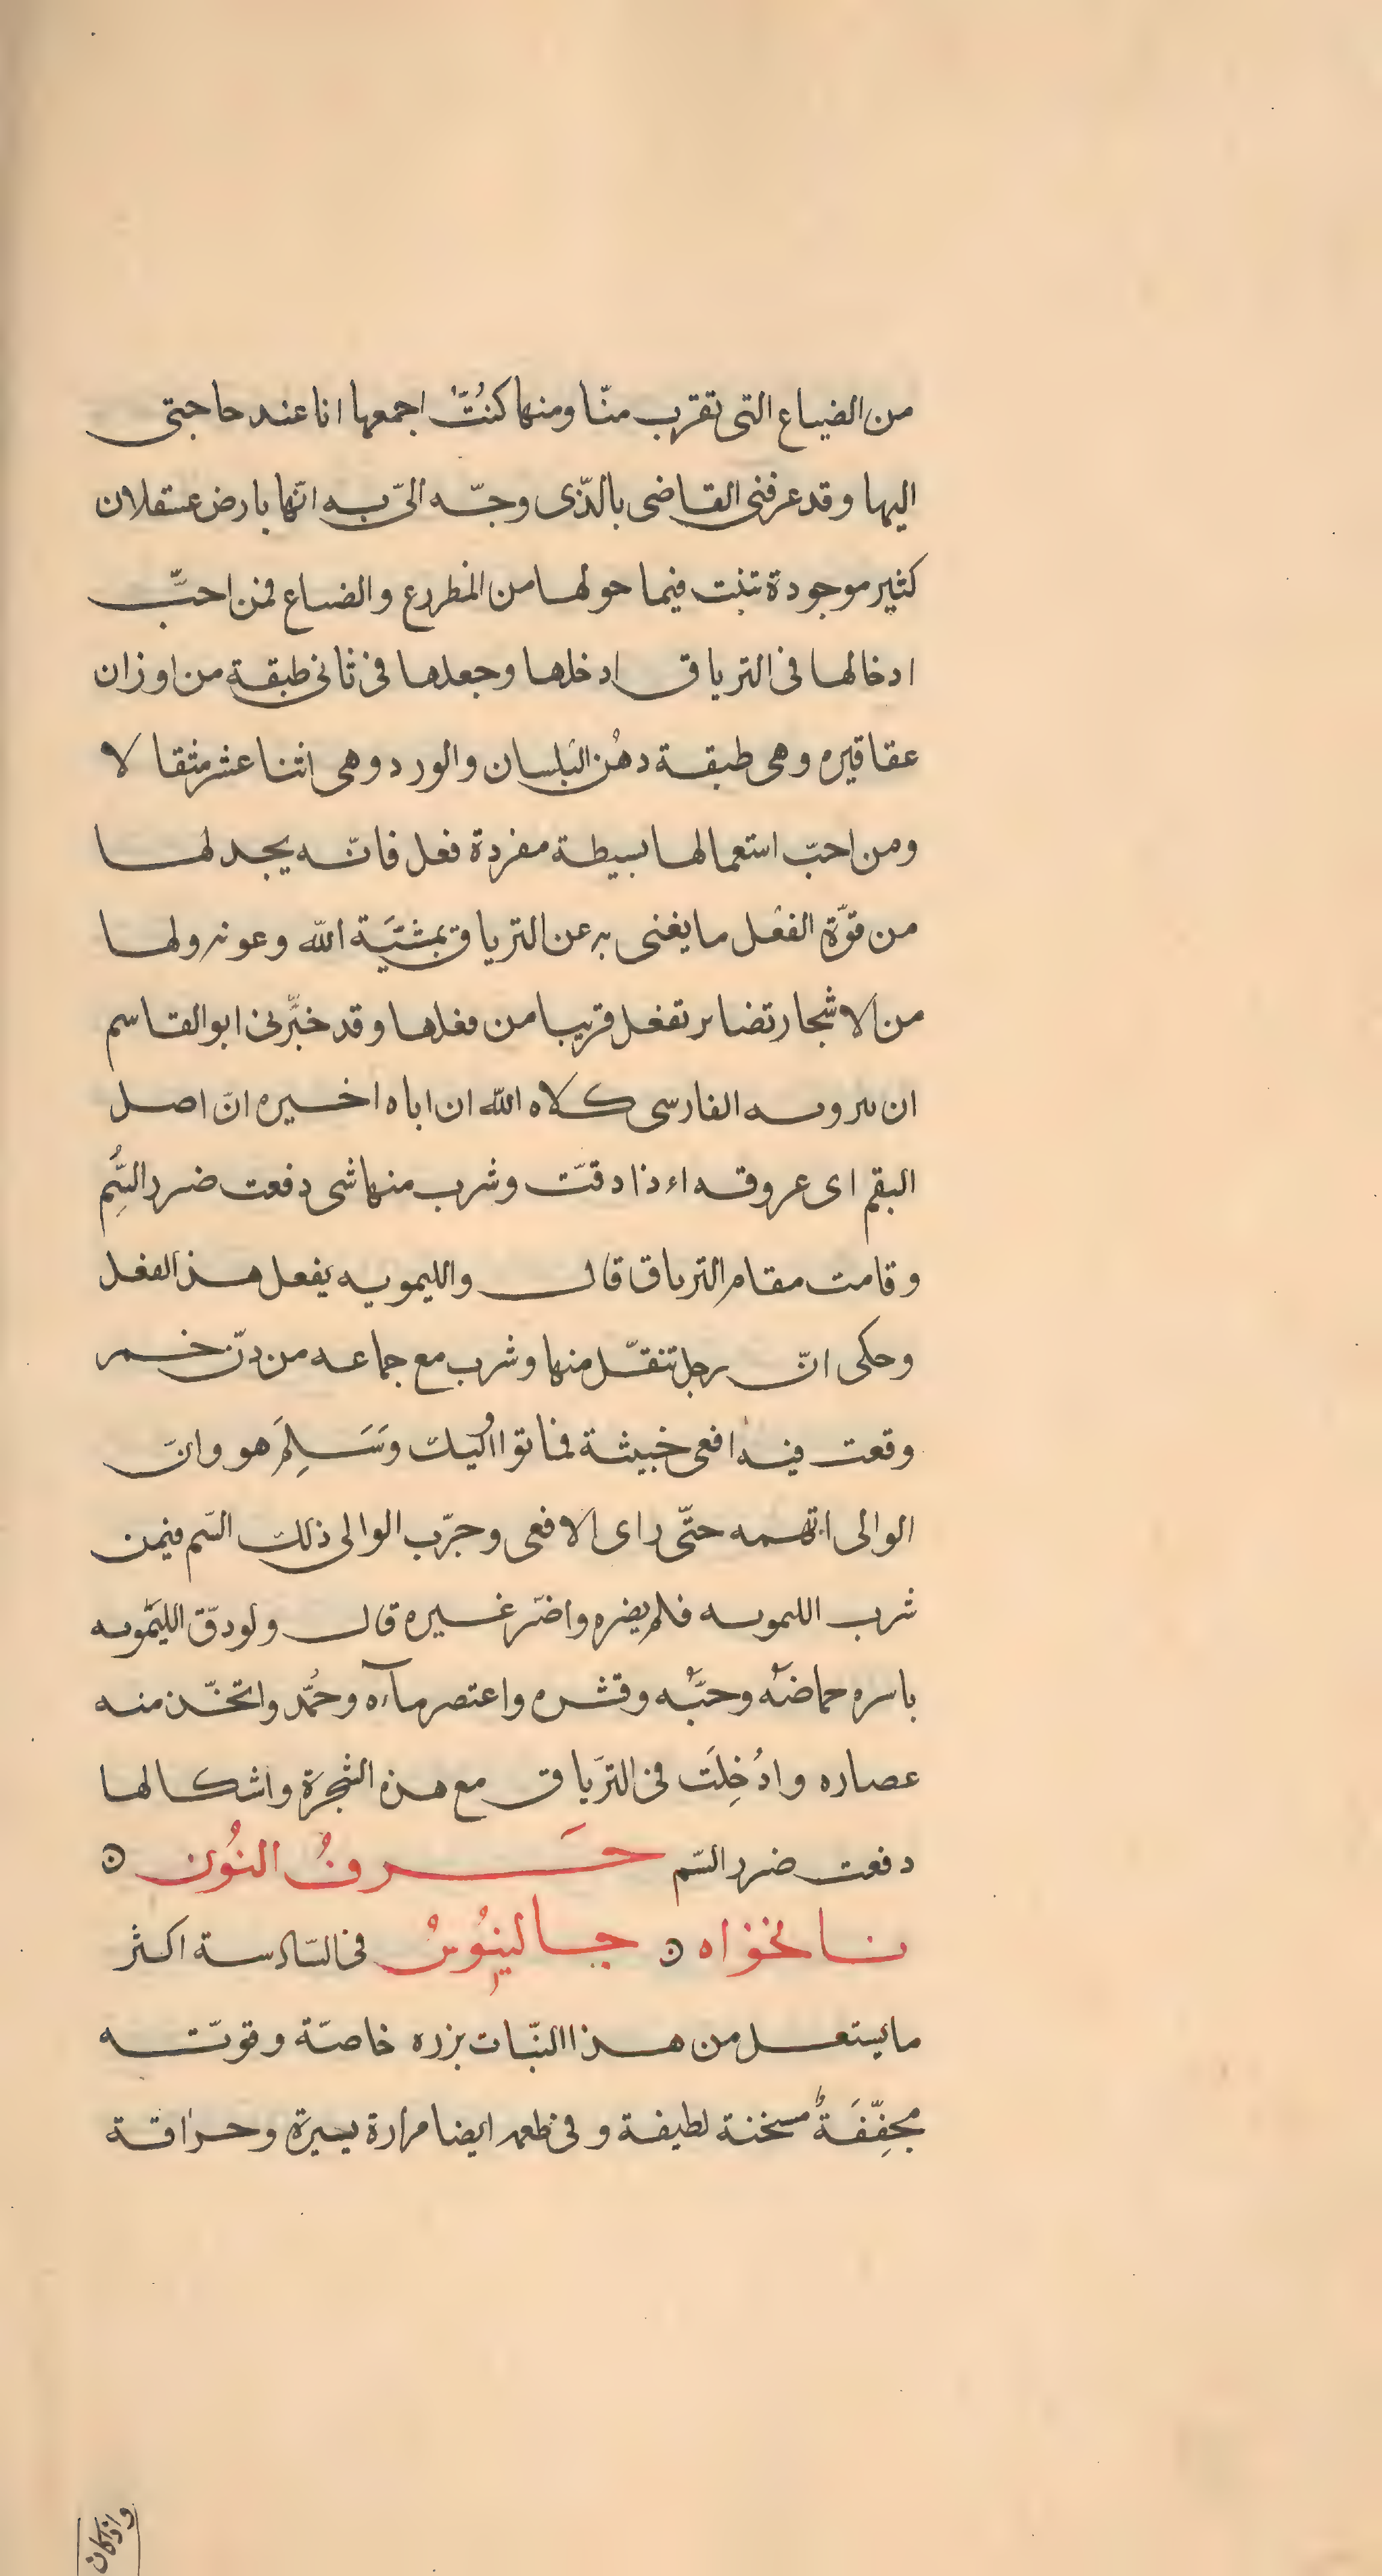 من الضياع التى تقرب منّا ومنها كنتُ اجمعها انا عند حاجتى
اليها وقد عرفنى القاضى بالذّى وجّه الىّ به انّها بارض عسقلان
كثير موجودة تنبت فيما حولها من والضياع فمن احبّ
ادخالها فى الترياق ادخلها وجعلها فى ثانى طبقة من اوزان
عقاقيره وهى طبقة دهُن البَلسان والورد وهى اثنا عشر مثقالا
ومن احبّ استعمالها بسيطة مفردة فعل فانّه يجد لها
من قوّة الفعْل ما يغنى به عن الترياق بمشيَّة الله وعونه ولها
من الاشجار تفعل قريبا من فعلها وقد خبَّرنى ابو القاسم
ان الفارسى كلاه الله ان اباه اخبره انّ اصل
البقم اى عروقه اءذا دقتّ وشرب منها شى دفعت ضرر السُّمِ
وقامت مقام الترياق قال والليمويه يفعل هذ الفعل
وحكى انّ رجل تنقّل منها وشرب مع جماعه من دنّ خمر
وقعت فيه افعى خبيثة فماتوا اُليك وَسَلِمَ هو وانّ
الوالى اتهمه حتّى راى الافعى وجرّب الوالى ذلك السّم فيمن
شرب الليمويه فلم يضره واضّر غيره قال ولو دقّ الليمّويه
باسره حماضهُ وحبَّهُ وقشره واعتصر مآءه وجُمّد واتخّذ منه
عصاره وادُخِلَت فى الترَياق مع هذه الشجرَة واشكالها
دفعت ضرر السّم حَرفُ النُون ۞
نانخواه ۞ جالينُوسُ فى السّادسة اكثر
ما يستعمل من هذا النبّات بزره خاصّة وقوتّه
مجفِّفَةٌ مسخنة لطيفة وفى طعمه ايضا مرارة يسيرة وحرافة
واذا كان